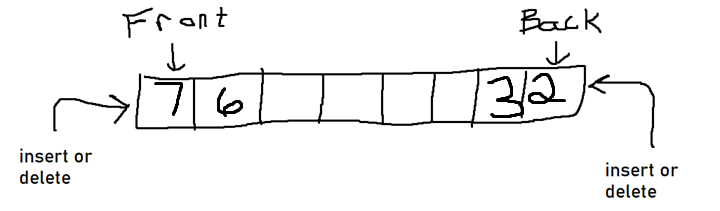 Front Back
7 6 3 2
insert or
delete
insert or
delete